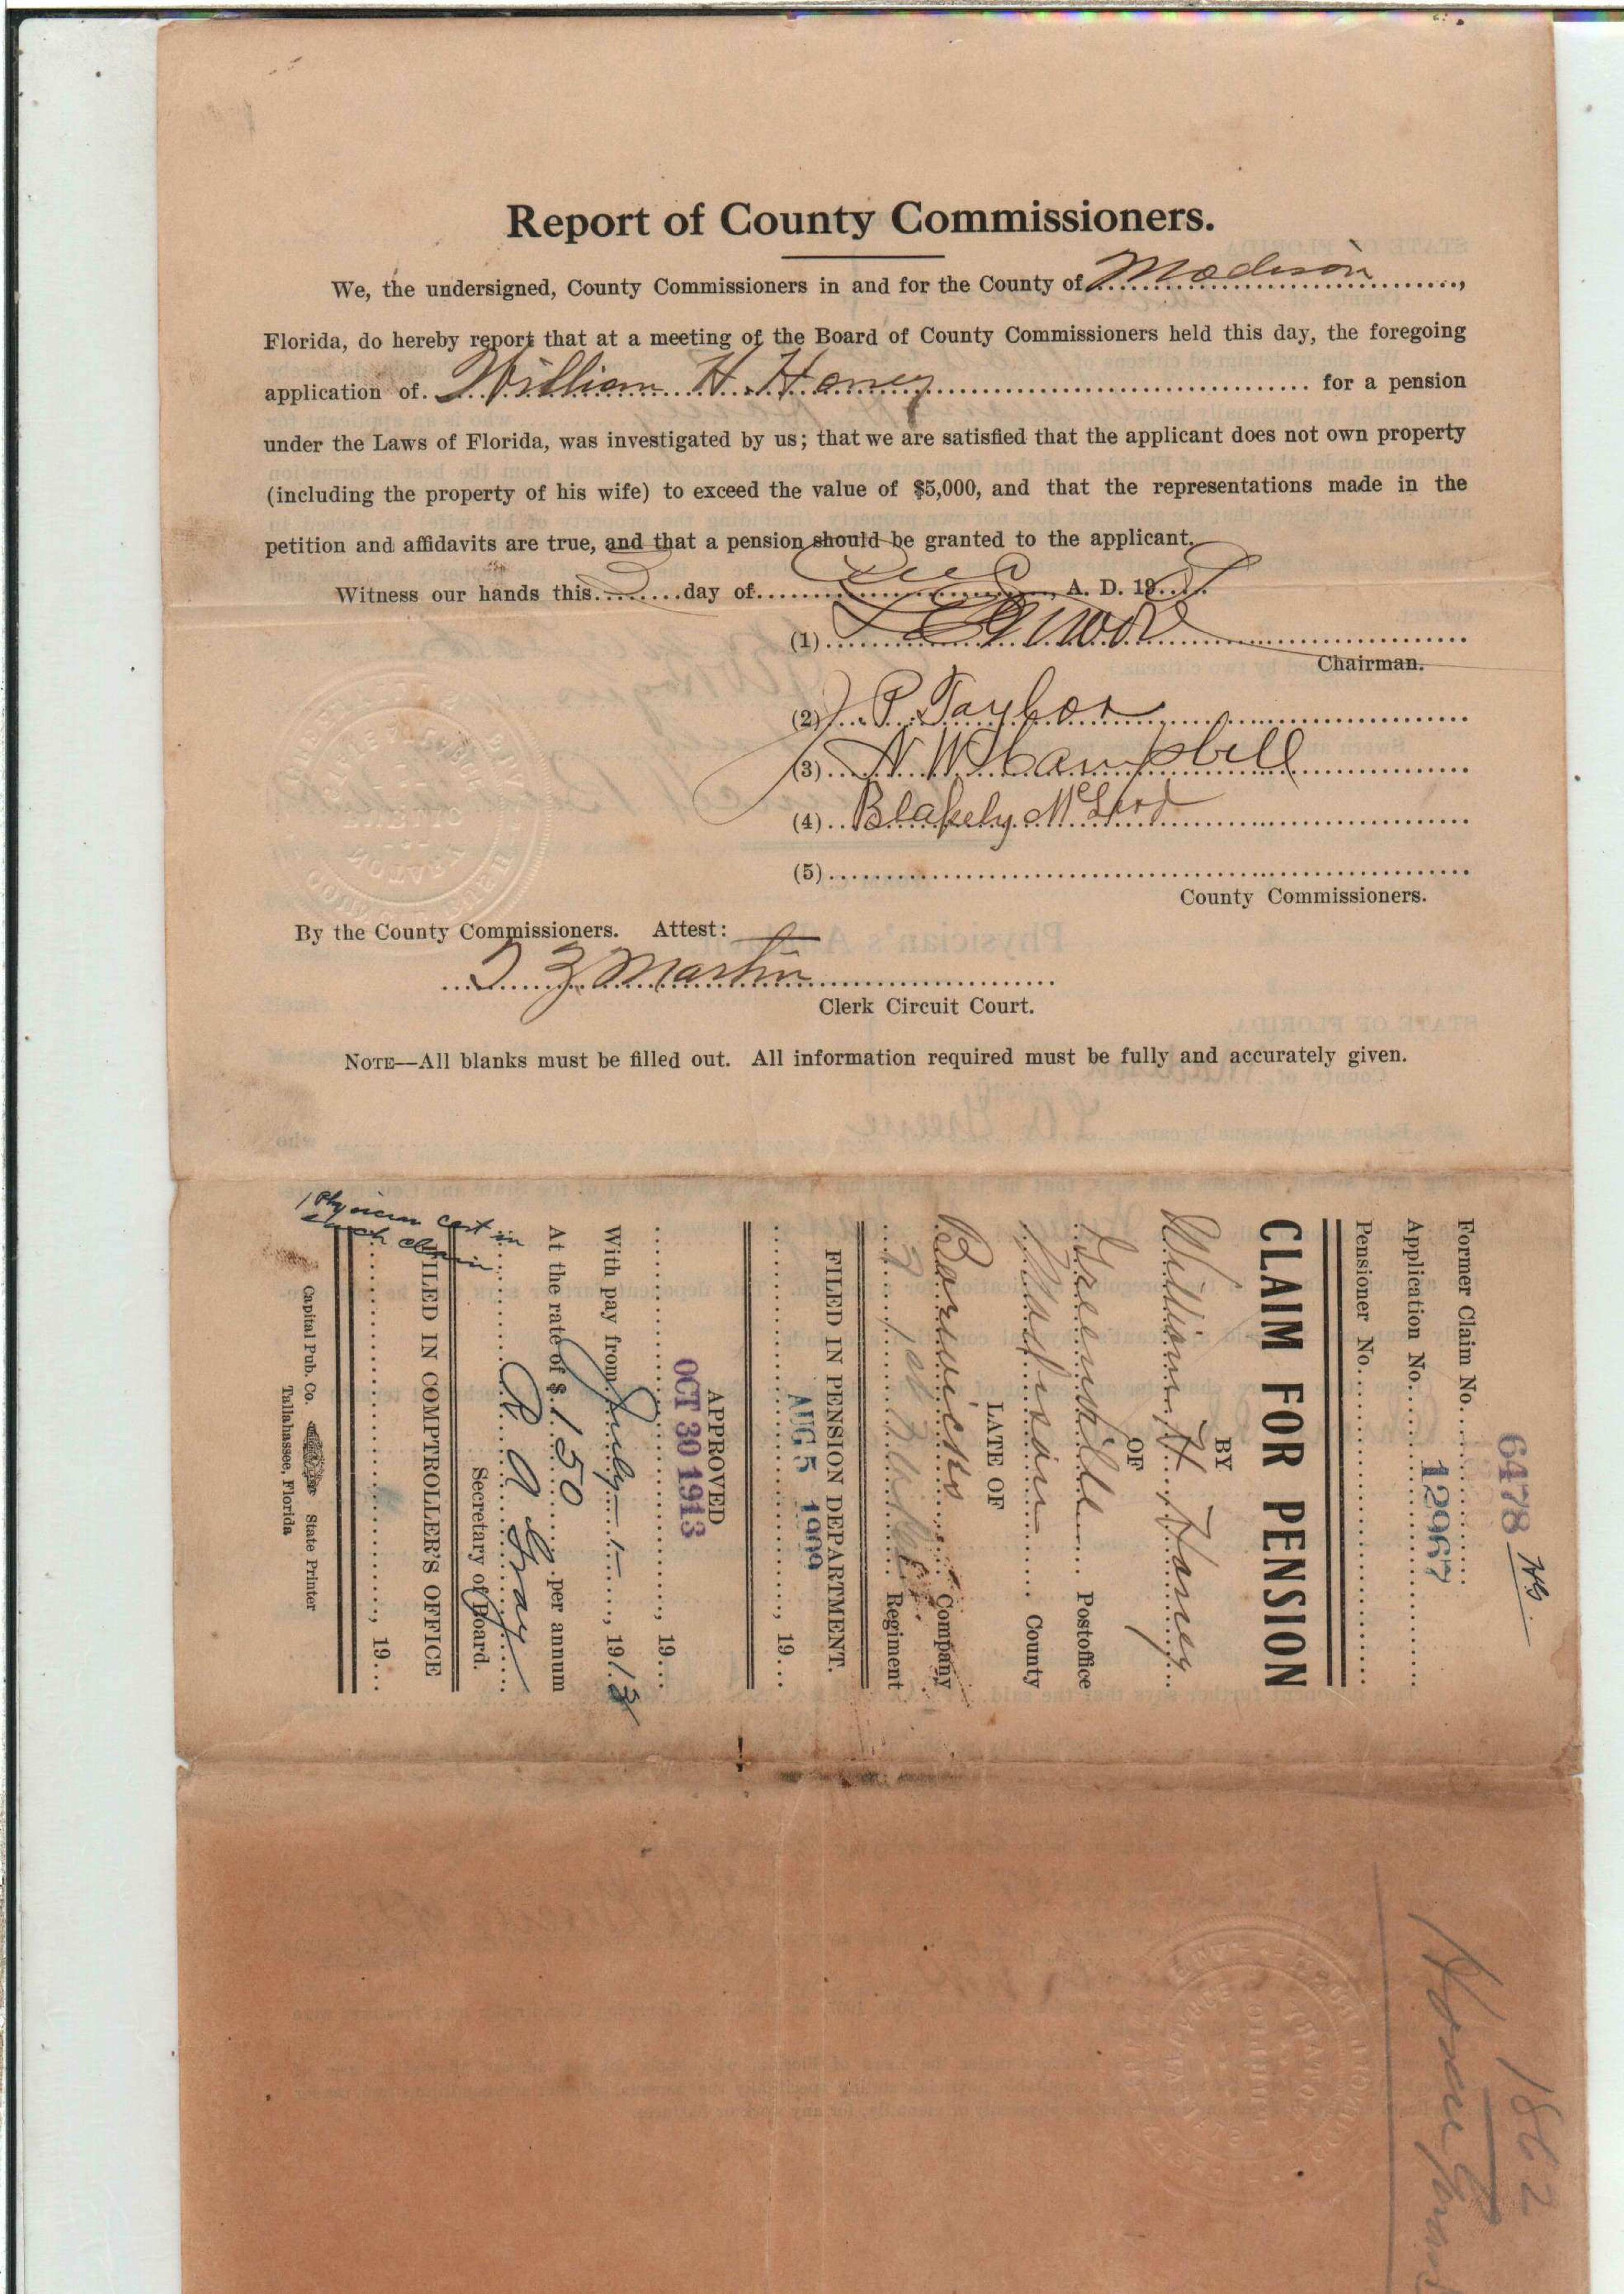 Report of County Commissioners.
We, the undersigned, County Commissioners in and for the County of Madison,
Florida, do hereby report that at a meeting of the Board of County Commissioners held this day, the foregoing
application of William H. Haney for a pension
under the Laws of Florida, was investigated by us; that we are satisfied that the applicant does not own property
(including the property of his wife) to exceed the value of $5,000, and that the representations made in the
petition and affidavits are true, and that a pension should be granted to the applicant.
Witness our hands this 2 day of Aug, A. D. 19
(1)
Chairman.
(2) J P Taylor
(3) N W Campbell
(4) Blakely McLeod
(5)
County Commissioners.
By the County Commissioners. Attest:
T Z Martin
Clerk Circuit Court.
NOTE—All blanks must be filled out. All information required must be fully and accurately given.
6478
Former Claim No.
Application No. 12967
Pensioner No.
CLAIM FOR PENSION
BY
William H. Haney
OF
Greenville Postoffice
Madison County
LATE OF
Company
Regiment
FILED IN PENSION DEPARTMENT.
AUG 5 1909
, 19
APPROVED
OCT 30 1913
, 19
With pay from July 1, 1913
At the rate of $150 per annum
Secretary of Board.
FILED IN COMPTROLLER'S OFFICE
, 19
Physician cert in
Capital Pub. Co. State Printer
Tallahassee, Florida
1862